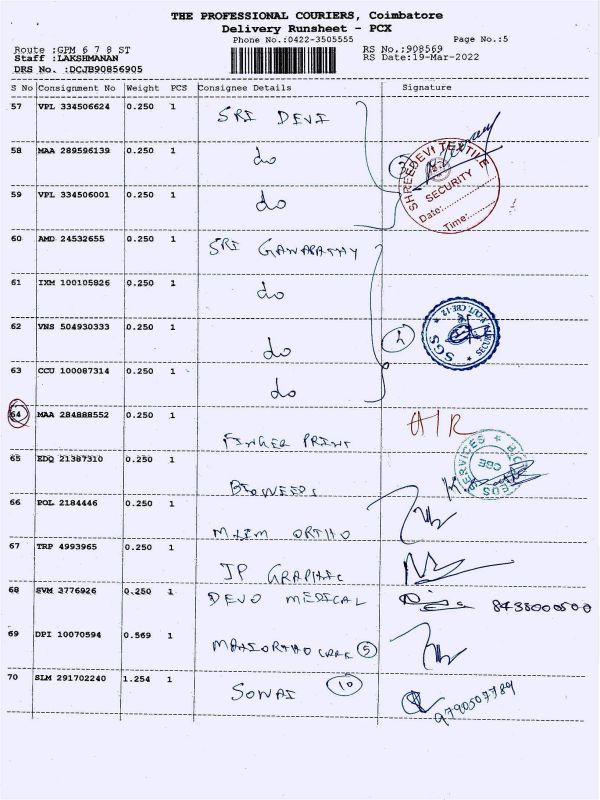 THE PROFESSIONAL COURIERS, Coimbatore
Delivery Runsheet - PCX
Phone No.:0422-3505555
Page No.:5
Route :GPM 6 7 8 ST
RS No.:908569
Staff :LAKSHMANAN
RS Date:19-Mar-2022
DRS No. :DCJB90856905
S No Consignment No Weight PCS Consignee Details Signature
57 VPL 334506624 0.250 1 SRI DEVI
58 MAA 289596139 0.250 1 do
SHREEDEVI TEXTILE
SECURITY
Date:
Time:
59 VPL 334506001 0.250 1 do
60 AMD 24532655 0.250 1 SRI GANAPATHY
61 IXM 100105826 0.250 1 do
62 VNS 504930333 0.250 1 do
SGS
63 CCU 100087314 0.250 1 do
64 MAA 284888552 0.250 1 FINGER PRINT AIR
65 EDQ 21387310 0.250 1
SERVICES
CBE
66 POL 2184446 0.250 1 ORTHO
67 TRP 4993965 0.250 1 JP GRAPHIC
68 SVM 3776926 0.250 1 DEVO MEDICAL
69 DPI 10070594 0.569 1 5
70 SLM 291702240 1.254 1 SONAI 10
9790507789